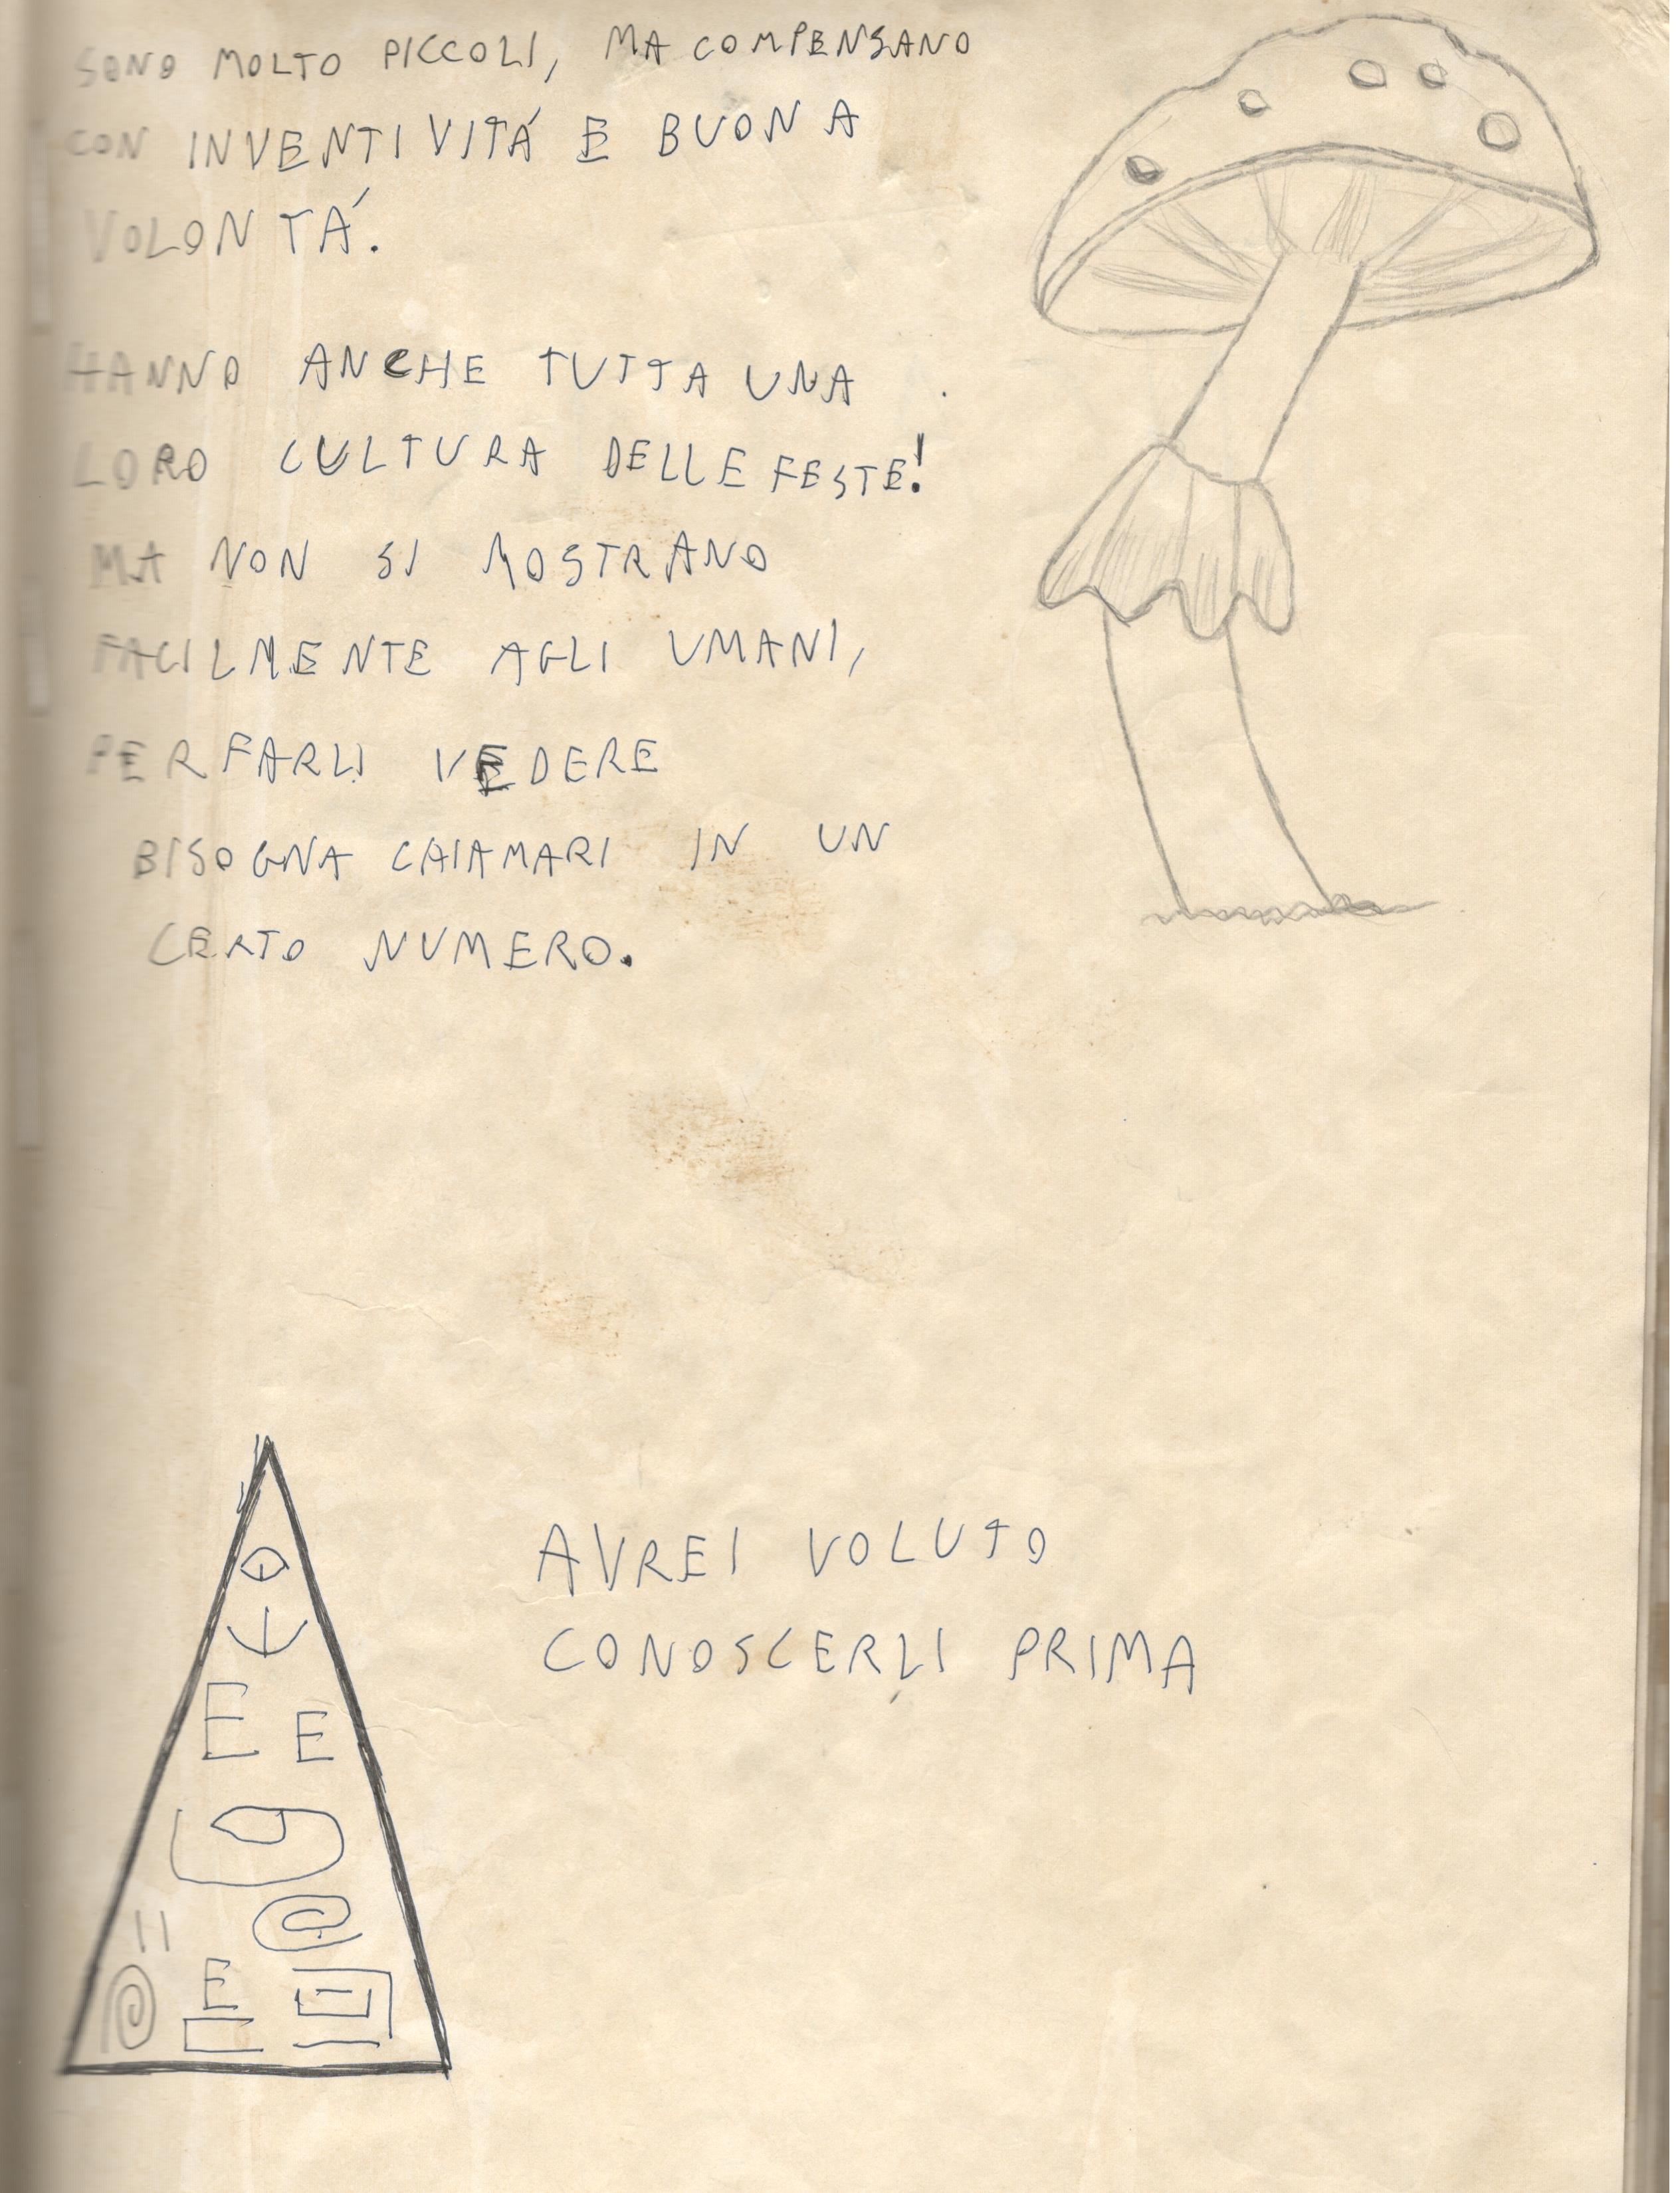 SONO MOLTO PICCOLI, MA COMPENSANO
CON INVENTIVITÁ E BUONA
VOLONTÁ.
HANNO ANCHE TUTTA UNA
LORO CULTURA DELLE FESTE!
MA NON SI MOSTRANO
FACILMENTE AGLI UMANI,
PER FARLI VEDERE
BISOGNA CHIAMARI IN UN
CERTO NUMERO.
AVREI VOLUTO
CONOSCERLI PRIMA
E E
E